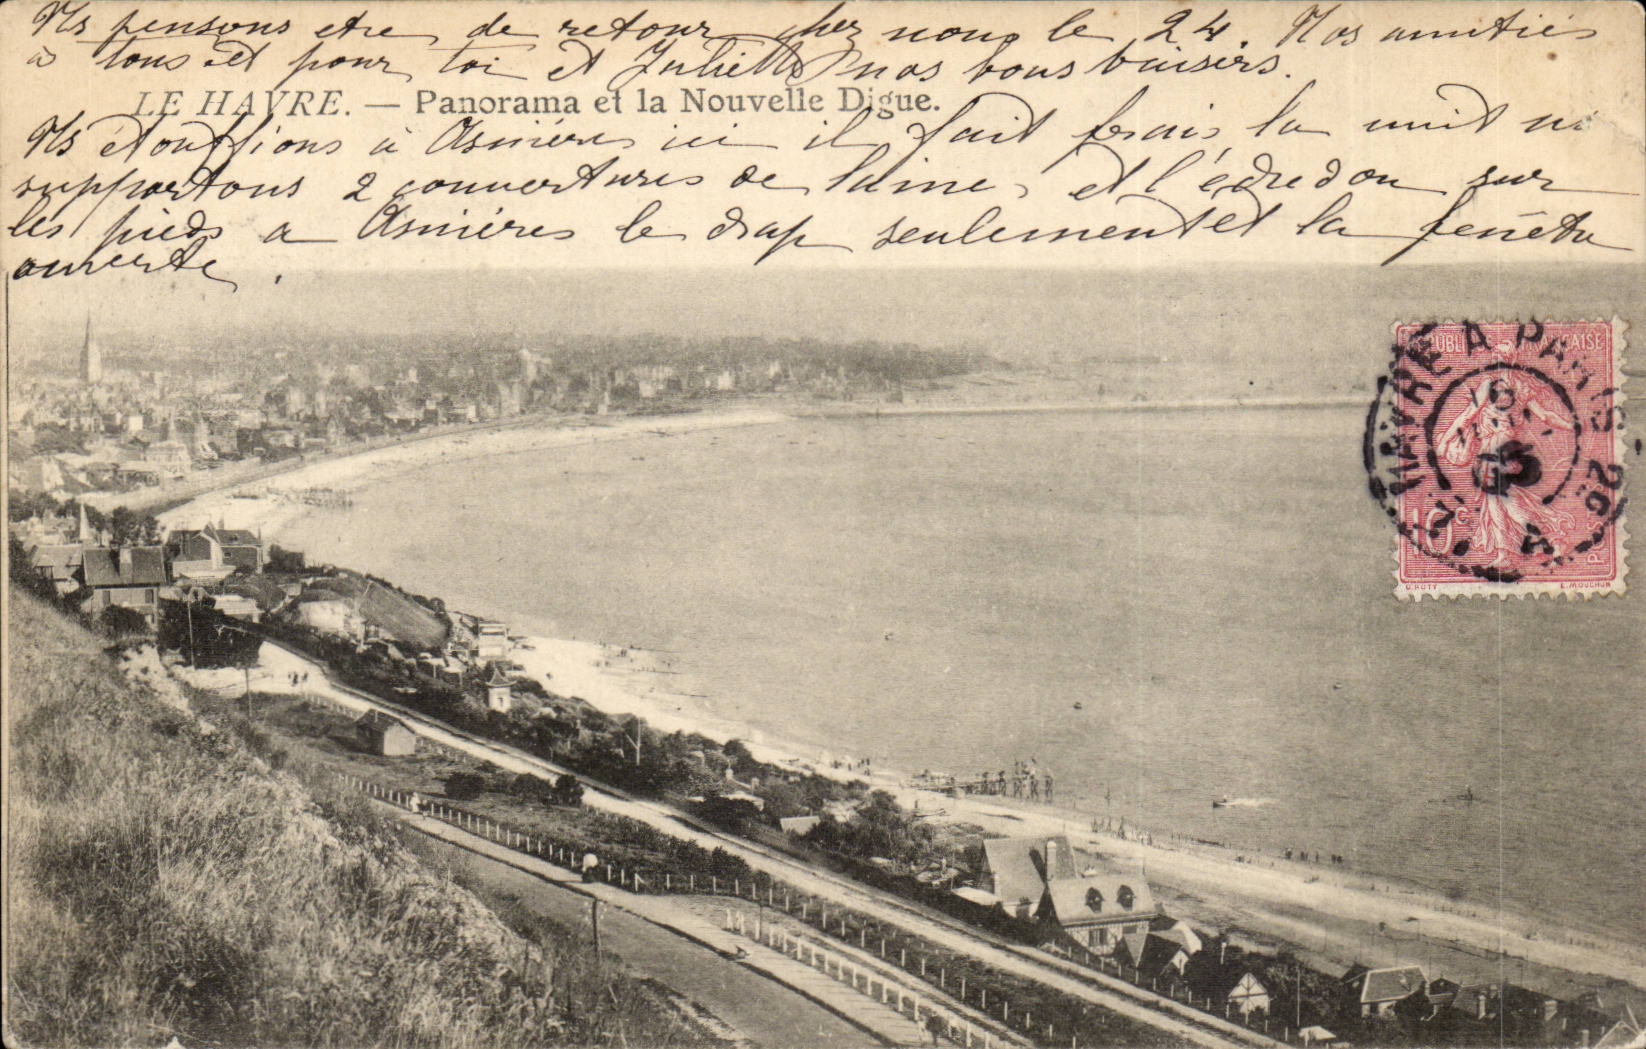 Ns pensons etre de retour chez nous le 24. Nos amitiés
à tous et pour toi et Juliette nos bons baisers.
LE HAVRE. — Panorama et la Nouvelle Digue.
Ns étouffions à Asnières ici il fait frais la nuit ns
supportons 2 couvertures de laine, et l'édredon sur
les pieds a Asnières le drap seulement et la fenêtre
ouverte.
REPUBLIQUE FRANÇAISE
HAVRE A PARIS 2º
16
05
A
10c
O. ROTY E. MOUCHON